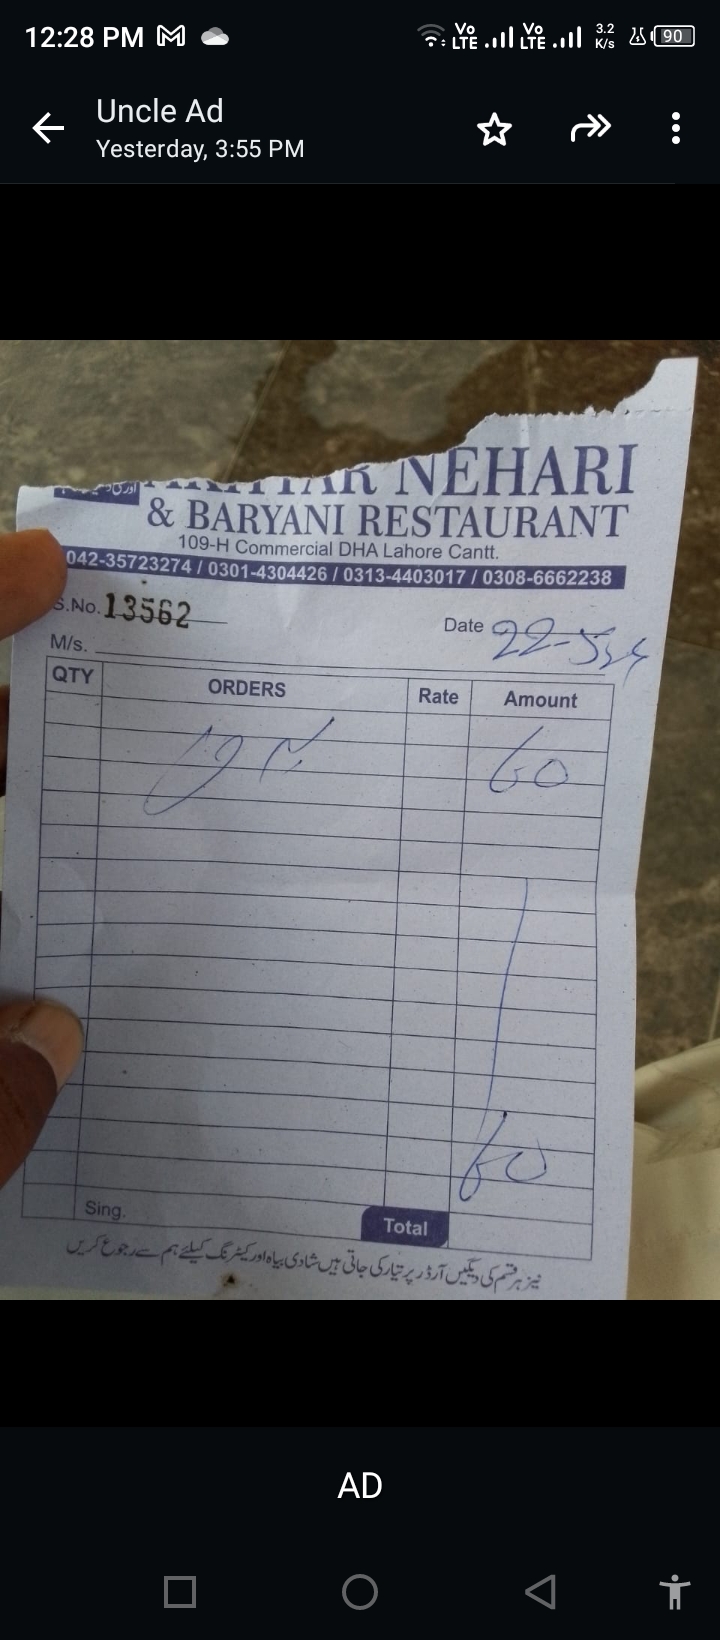 12:28 PM
Vo LTE Vo LTE 3.2 K/s 90
Uncle Ad
Yesterday, 3:55 PM
NEHARI
& BARYANI RESTAURANT
109-H Commercial DHA Lahore Cantt.
042-35723274 / 0301-4304426 / 0313-4403017 / 0308-6662238
S.No. 13562 Date 22-5-24
M/s.
QTY ORDERS Rate Amount
60
60
Sing. Total
نیز ہر قسم کی دیگیں آرڈر پر تیار کی جاتی ہیں شادی بیاہ اور کیٹرنگ کیلئے ہم سے رجوع کریں
AD